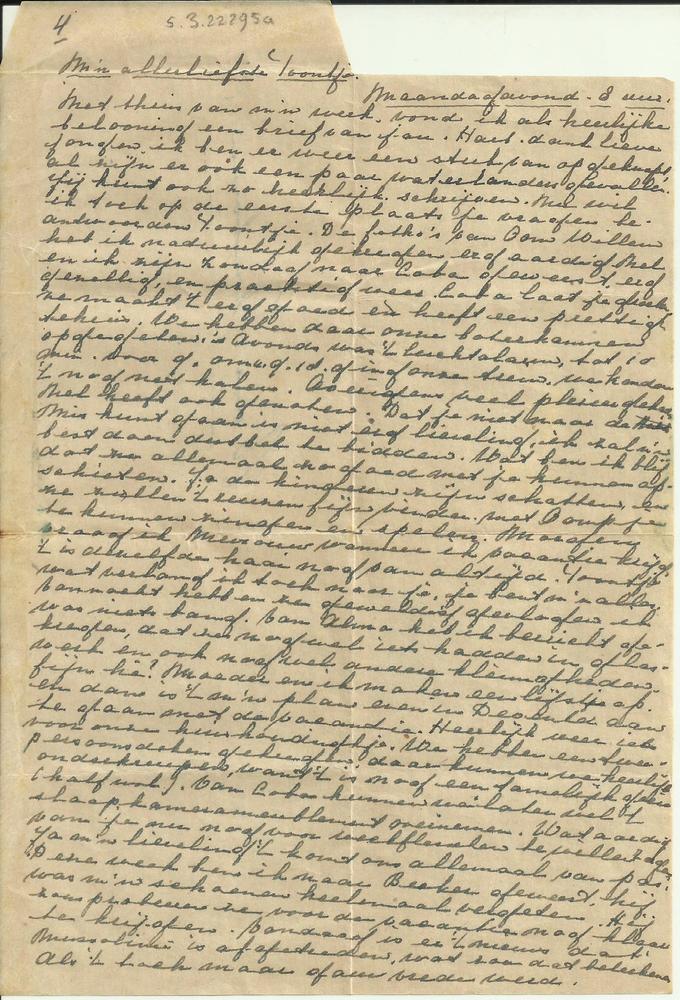 4
S.3.22295a
M'n allerliefste Toontje.
Maandagavond - 8 uur.
Met thuis van m'n werk, vond ik als heerlijke
belooning een brief van jou. Hart. dank lieve
jongen, ik ben er weer een stuk van opgeknapt,
al zijn er ook een paar waterlanders gevallen.
Jij kunt ook zo heerlijk schrijven. Nel wil
ik toch op de eerste plaats je vragen be-
andwoorden Toontje. De foto's van Oom Willem
heb ik natuurlijk gekregen erg aardig. Nel
en ik zijn Zondag naar Coba geweest, erg
gezellig, en prachtig weer. Coba laat je groeten
ze maakt 't erg goed en heeft een prettig
tehuis. We hebben daar onze boterhammen
opgegeten, 's Avonds was 't luchtalarm, tot 10
min. voor 9, om 9.10 ging onze trein, we konden
't nog net halen. Overigens veel plezier gehad.
Nel heeft ook genoten. Dat je niet naar de
Mis kunt gaan is niet erg lieveling, ik zal m'n
best doen dubbel te bidden. Wat ben ik blij
dat ze allemaal zo goed met je kunnen op-
schieten. Ja de kinderen zijn schatten, en
ze zullen 't reuzen fijn vinden met Oompje
te kunnen zingen en spelen. Morgen
vraag ik Mevrouw wanneer ik vacantie krijg,
't is dezelfde haai nog van altijd. Toontje
wat verlang ik toch naar je, je bent m'n alles,
vannacht hebben ze geweldig gevlogen, ik
was niets bang. Van Alma heb ik bericht ge-
kregen, dat ze nog wel iets hadden in glas-
werk en ook nog wel andere kleinigheden,
fijn hè? Moeder en ik maken een lijstje op.
en dan is 't m'n plan even in December daar
te gaan met de vacantie. Heerlijk weer iets
voor onze huishouding hè. We hebben een twee-
persoonsdeken gekregen, daar kunnen we heerlijk
onderkruipen, want 't is nog een tamelijk goeie
(half wol). Van Coba kunnen we later wel 't
slaapkamerameublement overnemen. Wat aardig
van je nu nog voor weckflesschen te willen zorgen
Ja m'n lieveling 't komt ons allemaal van pas.
Deze week ben ik naar Beeken geweest, hij
was m'n schoenen heelemaal vergeten. Hij
zou probeeren ze voor de vacantie nog klaar
te krijgen. Vandaag is er 't nieuws dat
Mussolini is afgetreden, wat zou dat beteekenen
Als 't toch maar gauw vrede werd.